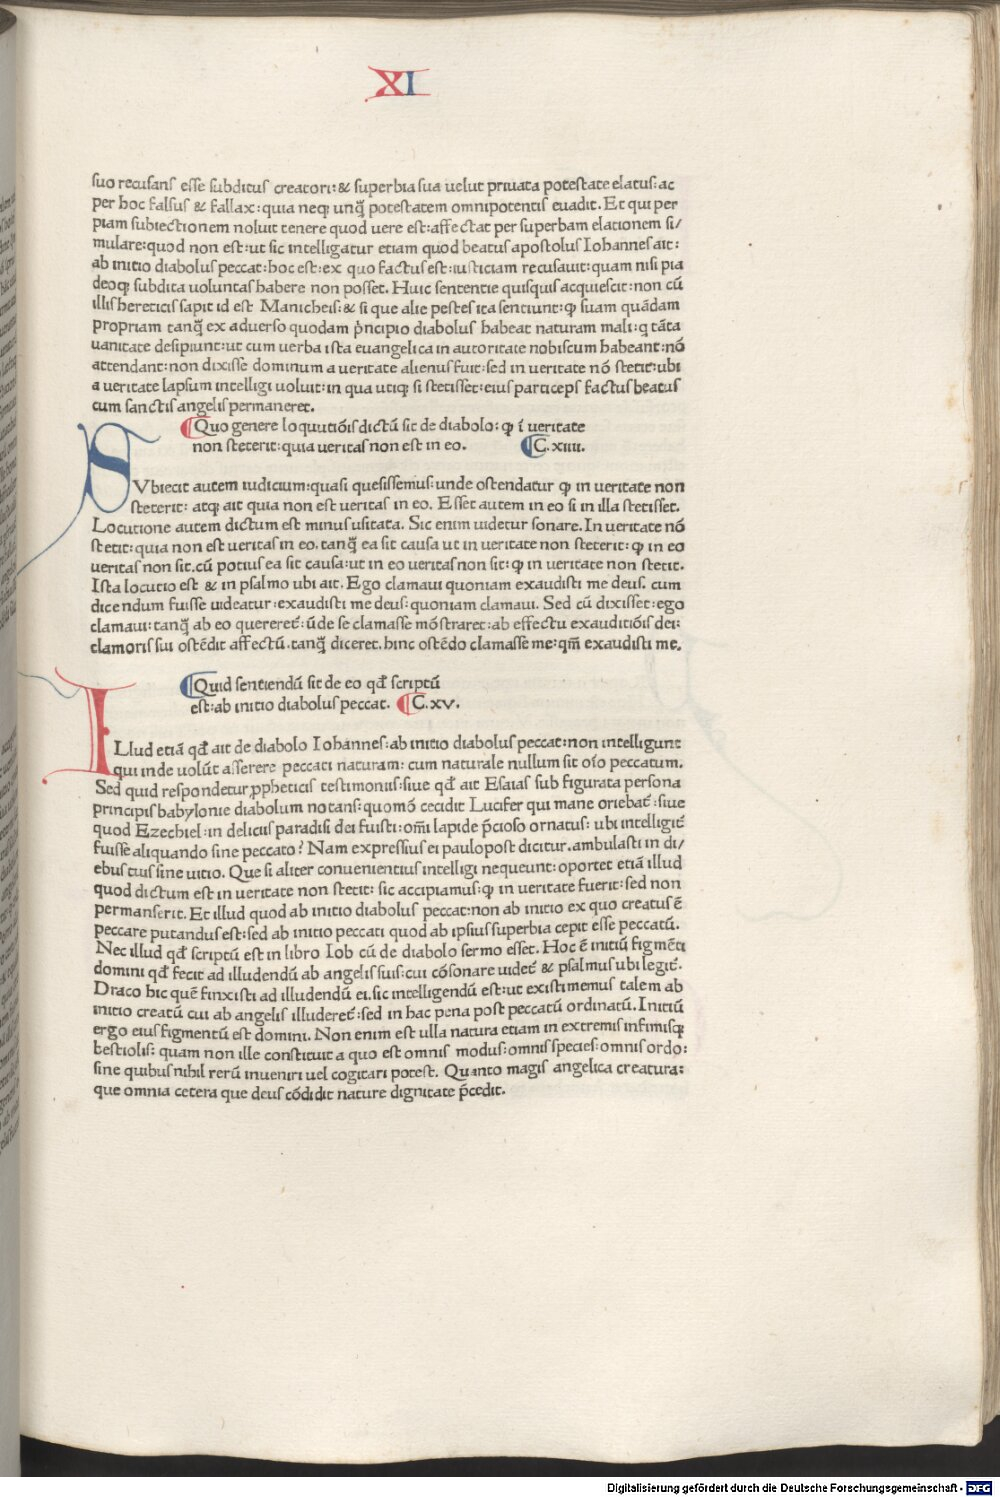 XI
suo recusans esse subditus creatori: & superbia sua uelut priuata potestate elatus: ac
per hoc falsus & fallax: quia neqꝫ unq̄ potestatem omnipotentis euadit. Et qui per
piam subiectionem noluit tenere quod uere est: affectat per superbam elationem si/
mulare: quod non est: ut sic intelligatur etiam quod beatus apostolus Iohannes ait:
ab initio diabolus peccat: hoc est: ex quo factus est: iusticiam recusauit: quam nisi pia
deoqꝫ subdita uoluntas habere non posset. Huic sententie quisquis acquiescit: non cū
illis hereticis sapit id est Manicheis: & si que alie pestes ita sentiunt: ꝙ suam quādam
propriam tanq̄ ex aduerso quodam p̄ncipio diabolus habeat naturam mali: q tāta
uanitate desipiunt: ut cum uerba ista euangelica in autoritate nobiscum habeant: nō
attendant: non dixisse dominum a ueritate alienus fuit: sed in ueritate nō stetit: ubi
a ueritate lapsum intelligi uoluit: in qua utiqꝫ si stetisset: eius particeps factus beatus
cum sanctis angelis permaneret.
Quo genere loquutiōis dictū sit de diabolo: ꝙ ī ueritate
non steterit: quia ueritas non est in eo. C. xiiii.
SVbiecit autem iudicium: quasi quesissemus: unde ostendatur ꝙ in ueritate non
steterit: atqꝫ ait quia non est ueritas in eo. Esset autem in eo si in illa stetisset.
Locutione autem dictum est minus usitata. Sic enim uidetur sonare. In ueritate nō
stetit: quia non est ueritas in eo. tanq̄ ea sit causa ut in ueritate non steterit: ꝙ in eo
ueritas non sit. cū potius ea sit causa: ut in eo ueritas non sit: ꝙ in ueritate non stetit.
Ista locutio est & in psalmo ubi ait. Ego clamaui quoniam exaudisti me deus. cum
dicendum fuisse uideatur: exaudisti me deus: quoniam clamaui. Sed cū dixisset: ego
clamaui: tanq̄ ab eo quereret᷑: ūde se clamasse mōstraret: ab effectu exauditiōis dei:
clamoris sui ostēdit affectū. tanq̄ diceret. hinc ostēdo clamasse me: qm̄ exaudisti me.
Quid sentiendū sit de eo qd̄ scriptū
est: ab initio diabolus peccat. C. xv.
ILlud etiā qd̄ ait de diabolo Iohannes: ab initio diabolus peccat: non intelligunt
qui inde uolūt asserere peccati naturam: cum naturale nullum sit oīo peccatum.
Sed quid respondetur ꝓpheticis testimoniis: siue qd̄ ait Esaias sub figurata persona
principis babylonie diabolum notans: quomō cecidit Lucifer qui mane oriebat᷑: siue
quod Ezechiel: in deliciis paradisi dei fuisti: om̄i lapide p̄cioso ornatus: ubi intelligit᷑
fuisse aliquando sine peccato? Nam expressius ei paulopost dicitur. ambulasti in di/
ebus tuis sine uitio. Que si aliter conuenientius intelligi nequeunt: oportet etiā illud
quod dictum est in ueritate non stetit: sic accipiamus: ꝙ in ueritate fuerit: sed non
permanserit. Et illud quod ab initio diabolus peccat: non ab initio ex quo creatus ē
peccare putandus est: sed ab initio peccati quod ab ipsius superbia cepit esse peccatū.
Nec illud qd̄ scriptū est in libro Iob cū de diabolo sermo esset. Hoc ē initiū figmēti
domini qd̄ fecit ad illudendū ab angelis suis: cui cōsonare uidet᷑ & psalmus ubi legit᷑.
Draco hic quē finxisti ad illudendū ei. sic intelligendū est: ut existimemus talem ab
initio creatū cui ab angelis illuderet᷑: sed in hac pena post peccatū ordinatū. Initiū
ergo eius figmentū est domini. Non enim est ulla natura etiam in extremis infimisqꝫ
bestiolis: quam non ille constituit a quo est omnis modus: omnis species: omnis ordo:
sine quibus nihil rerū inueniri uel cogitari potest. Quanto magis angelica creatura:
que omnia cetera que deus cōdidit nature dignitate p̄cedit.
Digitalisierung gefördert durch die Deutsche Forschungsgemeinschaft - DFG